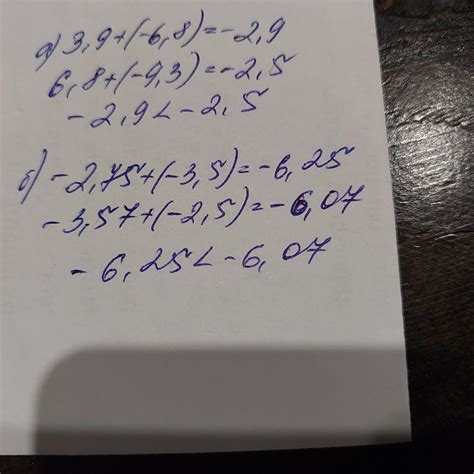 а) 3,9+(-6,8)=-2,9
6,8+(-9,3)=-2,5
-2,9<-2,5
б) -2,75+(-3,5)=-6,25
-3,57+(-2,5)=-6,07
-6,25<-6,07